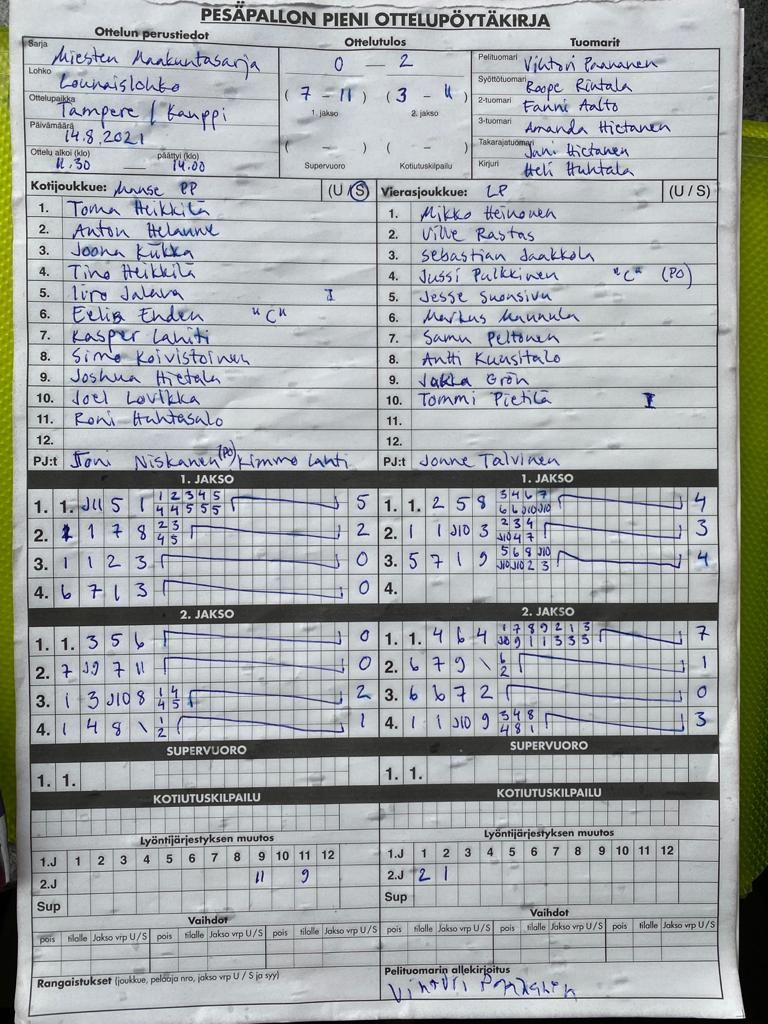 PESÄPALLON PIENI OTTELUPÖYTÄKIRJA
Ottelun perustiedot
Ottelutulos
Tuomarit
Sarja Miesten Maakuntasarja
Lohko Lounaislohko
Ottelupaikka Tampere / Kauppi
Päivämäärä 14.8.2021
Ottelu alkoi (klo) päättyi (klo)
11.30 — 14.00
0 – 2
( 7 – 11 ) ( 3 – 11 )
1. jakso 2. jakso
( – ) ( – )
Supervuoro Kotiutuskilpailu
Pelituomari Vihtori Paananen
Syöttötuomari Roope Rintala
2-tuomari Fanni Aalto
3-tuomari Amanda Hietanen
Takarajatuomari Jani Hietanen
Kirjuri Heli Huhtala
Kotijoukkue: Manse PP (U / S)
1. Toma Heikkilä
2. Anton Helanne
3. Joona Kukka
4. Tino Heikkilä
5. Iiro Jalava I
6. Eelis Enden "C"
7. Kasper Lahti
8. Simo Koivistoinen
9. Joshua Hietala
10. Joel Lovikka
11. Roni Huhtasalo
12.
PJ:t Toni Niskanen (PO) / Kimmo Lahti
Vierasjoukkue: LP (U / S)
1. Mikko Heinonen
2. Ville Rastas
3. Sebastian Jaakkola
4. Jussi Pulkkinen "C" (PO)
5. Jesse Suonsivu
6. Markus Mannula
7. Samu Peltonen
8. Antti Kuusitalo
9. Jukka Grön
10. Tommi Pietilä I
11.
12.
PJ:t Jonne Talvinen
1. JAKSO
1. 1. J11 5 1 1 2 3 4 5 5
4 4 5 5 5
2. 1 1 7 8 2 3 2
4 5
3. 1 1 2 3 0
4. 6 7 1 3 0
1. JAKSO
1. 1. 2 5 8 3 4 6 7 4
6 6 J10 J10
2. 1 1 J10 3 2 3 4 3
J10 4 7
3. 5 7 1 9 5 6 8 J10 4
J10 J10 2 3
4.
2. JAKSO
1. 1. 3 5 6 0
2. 7 J9 7 11 0
3. 1 3 J10 8 1 4 2
4 5
4. 1 4 8 \ 1 1
2
2. JAKSO
1. 1. 4 6 4 1 7 8 9 2 1 3 7
J10 9 1 1 3 3 5
2. 6 7 9 \ 6 1
2
3. 6 6 7 2 0
4. 1 1 J10 9 3 4 8 3
4 8 1
SUPERVUORO
1. 1.
SUPERVUORO
1. 1.
KOTIUTUSKILPAILU
KOTIUTUSKILPAILU
Lyöntijärjestyksen muutos
1.J 1 2 3 4 5 6 7 8 9 10 11 12
2.J 11 9
Sup
Lyöntijärjestyksen muutos
1.J 1 2 3 4 5 6 7 8 9 10 11 12
2.J 2 1
Sup
Vaihdot
pois tilalle Jakso vrp U / S pois tilalle Jakso vrp U / S pois tilalle Jakso vrp U / S
Vaihdot
pois tilalle Jakso vrp U / S pois tilalle Jakso vrp U / S pois tilalle Jakso vrp U / S
Rangaistukset (joukkue, pelaaja nro, jakso vrp U / S ja syy)
Pelituomarin allekirjoitus
Vihtori Paananen